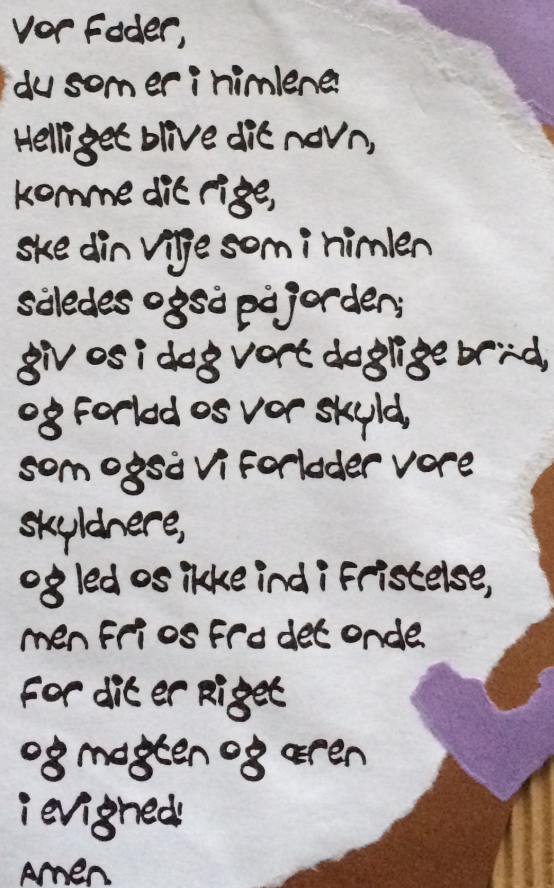 Vor Fader,
du som er i himlene!
Helliget blive dit navn,
komme dit rige,
ske din vilje som i himlen
således også på jorden;
giv os i dag vort daglige brød,
og forlad os vor skyld,
som også vi forlader vore
skyldnere,
og led os ikke ind i fristelse,
men fri os fra det onde.
For dit er Riget
og magten og æren
i evighed!
Amen.